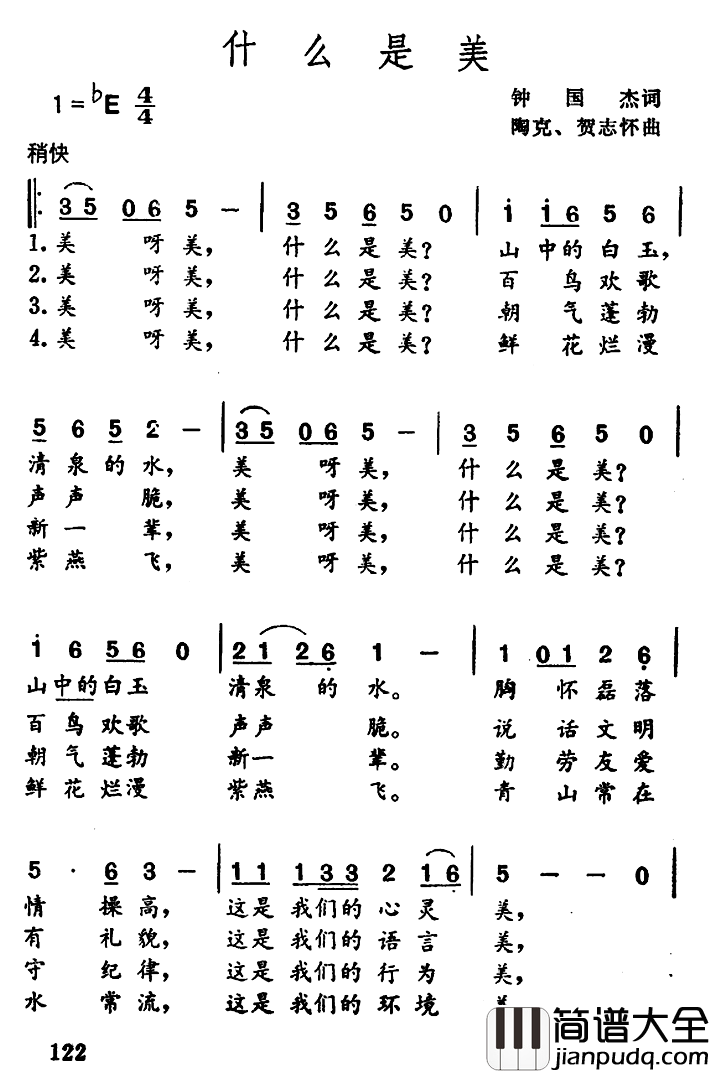 什么是美
1=♭E 4/4
钟国杰词
陶克、贺志怀曲
稍快
3 5 0 6 5 — | 3 5 6 5 0 | i i 6 5 6
1.美 呀美, 什么是美? 山中的白玉,
2.美 呀美, 什么是美? 百鸟欢歌
3.美 呀美, 什么是美? 朝气蓬勃
4.美 呀美, 什么是美? 鲜花烂漫
5 6 5 2 — | 3 5 0 6 5 — | 3 5 6 5 0
清泉的水, 美 呀美, 什么是美?
声声 脆, 美 呀美, 什么是美?
新一 辈, 美 呀美, 什么是美?
紫燕 飞, 美 呀美, 什么是美?
i 6 5 6 0 | 2 1 2 6 1 — | 1 0 1 2 6
山中的白玉 清泉 的 水。 胸 怀磊落
百鸟欢歌 声声 脆。 说 话文明
朝气蓬勃 新一 辈。 勤 劳友爱
鲜花烂漫 紫燕 飞。 青 山常在
5 · 6 3 — | 1 1 1 3 3 2 1 6 | 5 — — 0
情 操高, 这是我们的心灵 美,
有 礼貌, 这是我们的语言 美,
守 纪律, 这是我们的行为 美,
水 常流, 这是我们的环境 美
122
简谱大全
jianpudq.com